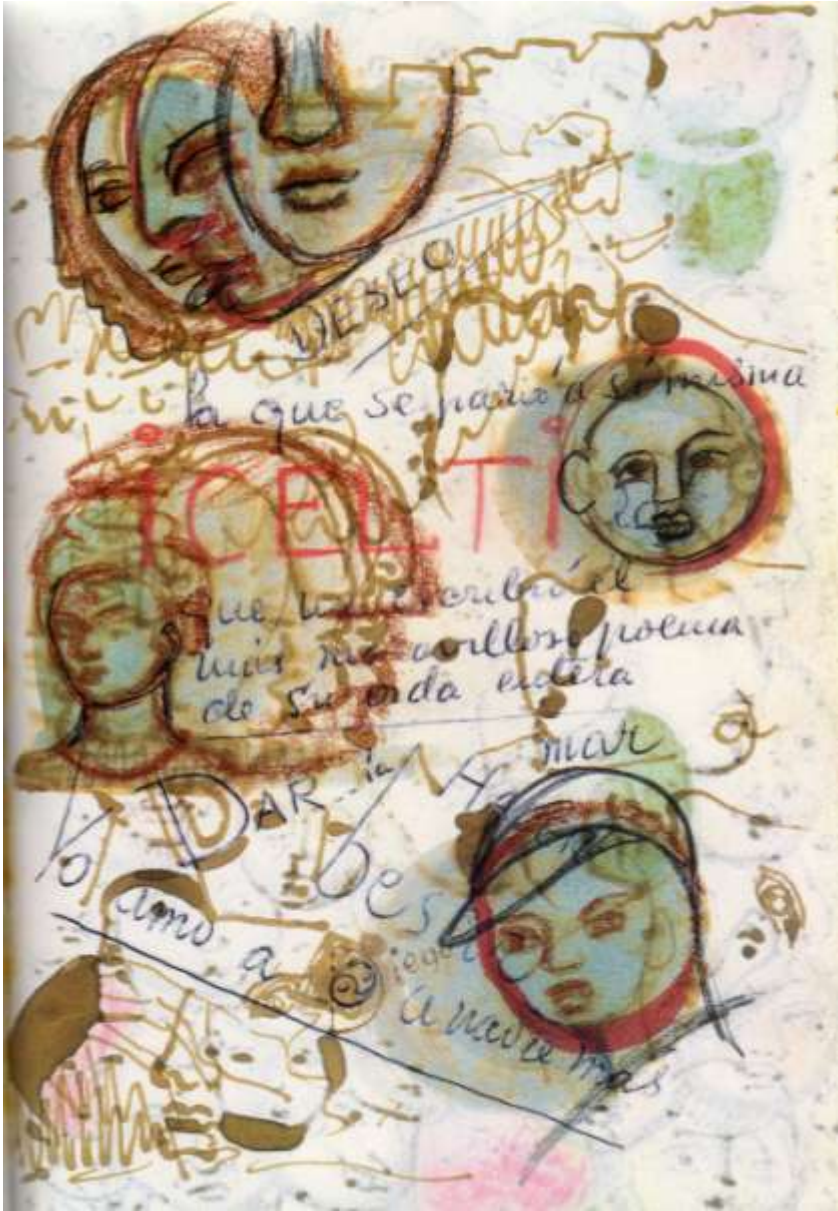 DESEO
la que se parió a sí misma
iCELTi
que me escribió el
más maravilloso poema
de su vida entera
yo DAR ía
mar
beso
amo a Diego
a nadie mas